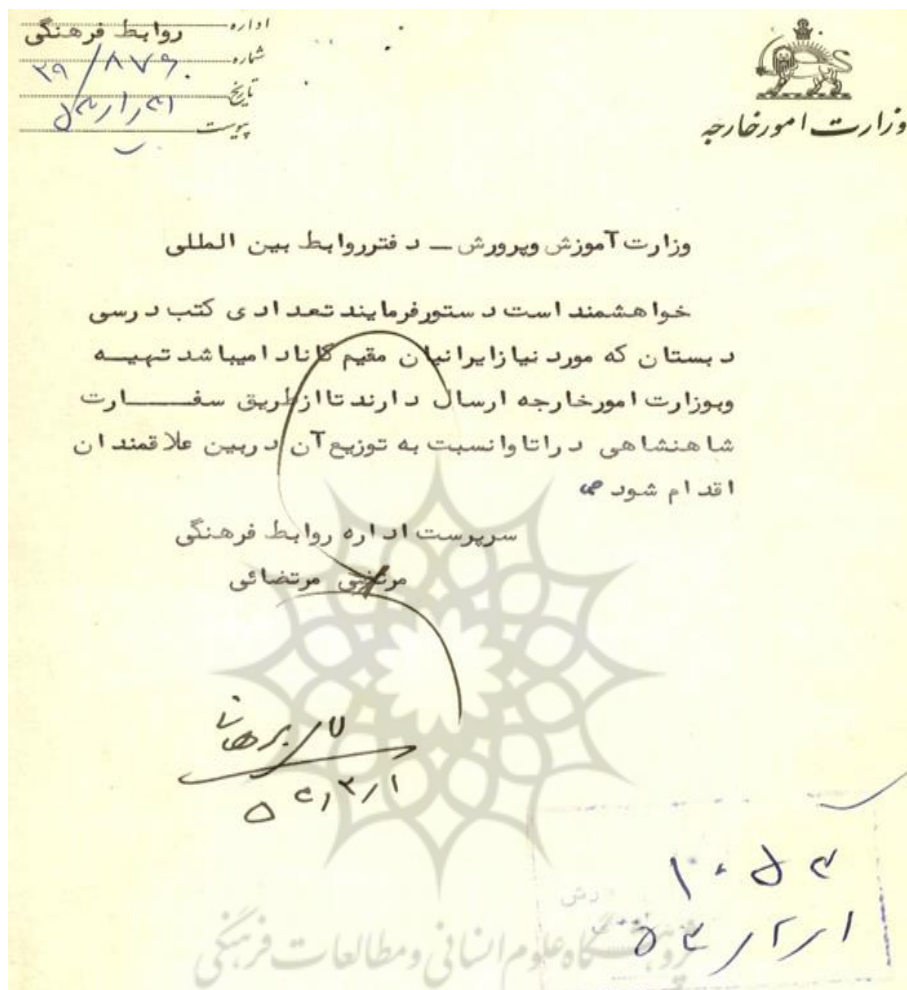 اداره روابط فرهنگی
شماره ۳۹/۸۷۶۰
تاریخ
پیوست
وزارت امورخارجه
وزارت آموزش وپرورش ــ دفترروابط بین المللی
خواهشمند است دستورفرمایند تعدادی کتب درسی
دبستان که مورد نیازایرانیان مقیم کانادا میباشد تهیـــه
وبوزارت امورخارجه ارسال دارند تاازطریق سفـــــارت
شاهنشاهی دراتاوانسبت به توزیع آن دربین علاقمندان
اقدام شود
سرپرست اداره روابط فرهنگی
مرتضی مرتضائی
پژوهشگاه علوم انسانی ومطالعات فرهنگی